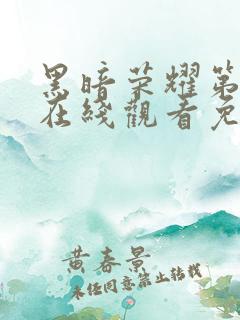 黑暗荣耀第
在线觀看免
黄春景
未经同意禁止转载